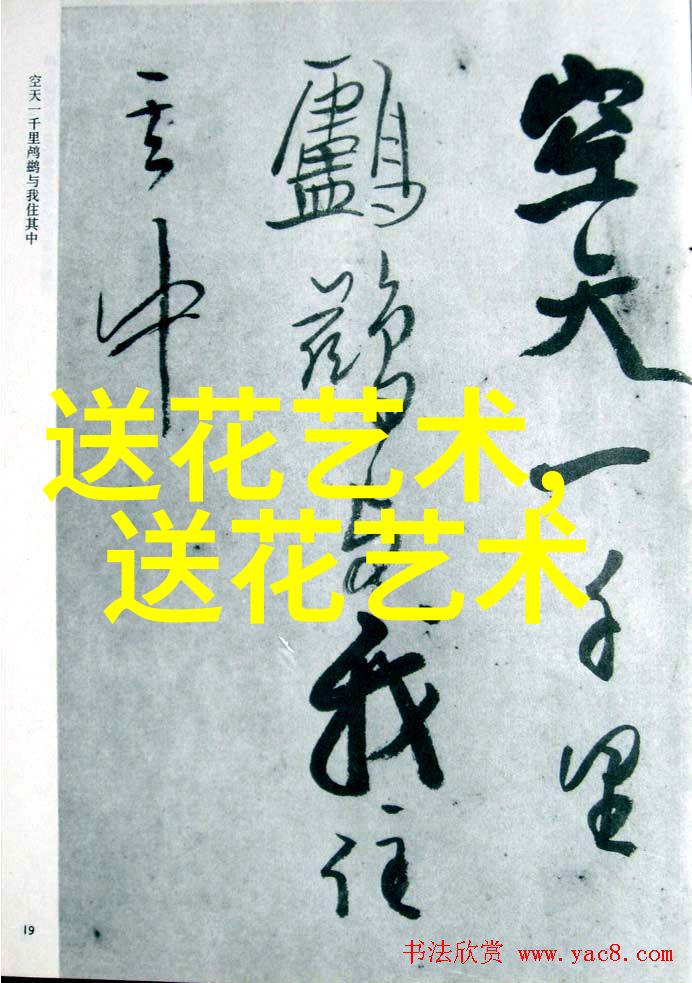 空天一千里
鸕鶿与我住
其中
空天一千里鸬鹚与我住其中
送花艺术,
送花艺术
19
书法欣赏 www.yac8.com